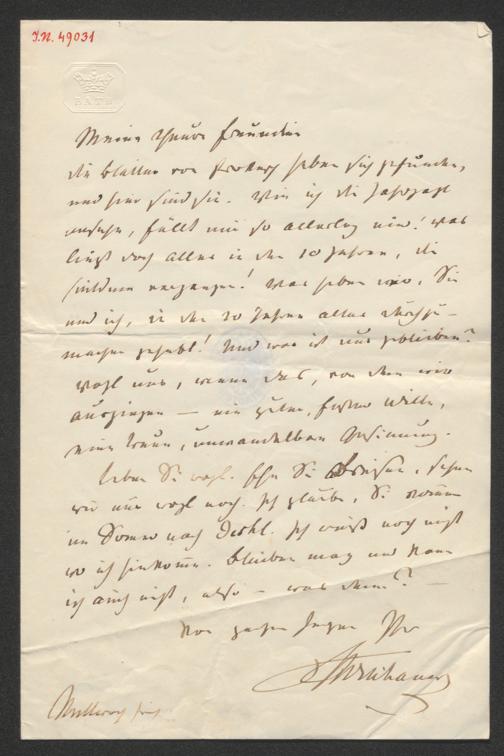 I.N. 49031
BATH
Meine theure Freundin
die Blätter von haben sich gefunden,
und hier sind sie. Wie ich die Jahrzahl
ansehe, fällt mir so allerley ein! Was
liegt doch alles in den 10 Jahren, die
seitdem vergangen! Was haben wir, Sie
und ich, in den 10 Jahren alles durchzu-
machen gehabt! Und was ist uns geblieben?
Wohl uns, wenn das, von dem wir
ausgingen — ein guter, Wille,
eine treue, unwandelbare Gesinnung.
Leben Sie wohl. Sie, sehen
wir uns wohl noch. Ich glaube, Sie kommen
im Sommer nach Ischl. Ich weiß noch nicht
wo ich hinkomme. Bleiben mag und kann
ich auch nicht, also — was denn? —
Von ganzem Herzen Ihr
Mittwoch früh